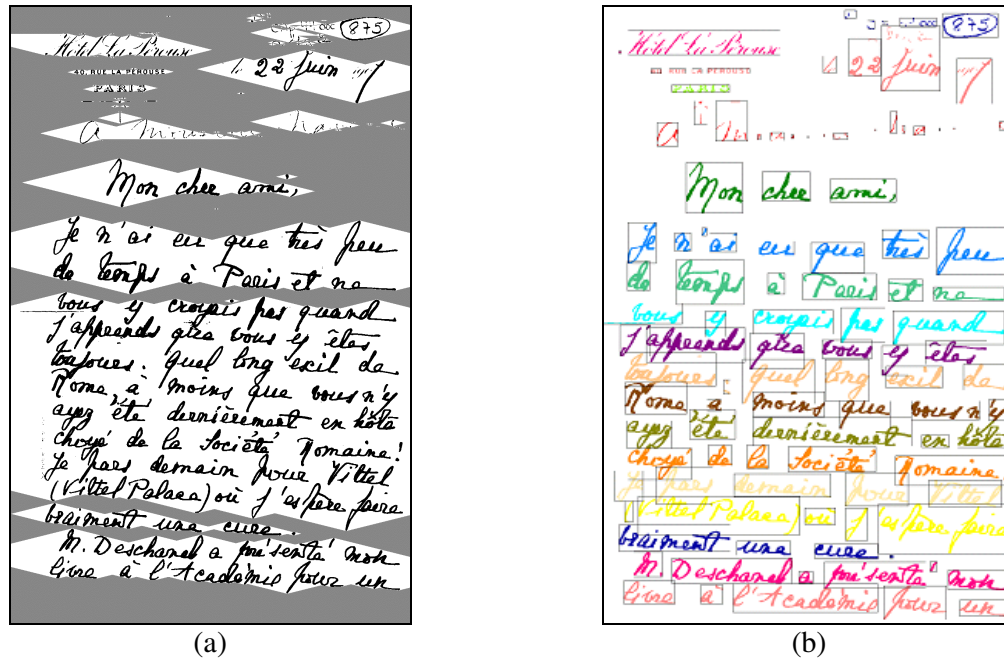 875
Hôtel La Pérouse
40, RUE LA PÉROUSE
22 Juin
PARIS
A
Mon cher ami,
Je n'ai eu que très peu
de temps à Paris et ne
vous y croyais pas quand
j'apprends que vous y êtes
toujours. quel long exil de
Rome à moins que vous n'y
ayez été dernièrement en hôte
choyé de la Société Romaine!
Je pars demain pour Vittel
(Vittel Palace) où j'espère faire
vraiment une cure.
M. Deschanel a présenté mon
livre à l'Académie pour un
(a)
875
Hôtel La Pérouse
RUE LA PEROUSE
22 Juin
PARIS
A
Mon cher ami,
Je n'ai eu que très peu
de temps à Paris et ne
vous y croyais pas quand
j'apprends que vous y êtes
toujours quel long exil de
Rome à moins que vous n'y
ayez été dernièrement en hôte
choyé de la Société Romaine
Je pars demain pour Vittel
(Vittel Palace) où j'espère faire
vraiment une cure.
M. Deschanel a présenté mon
livre à l'Académie pour un
(b)